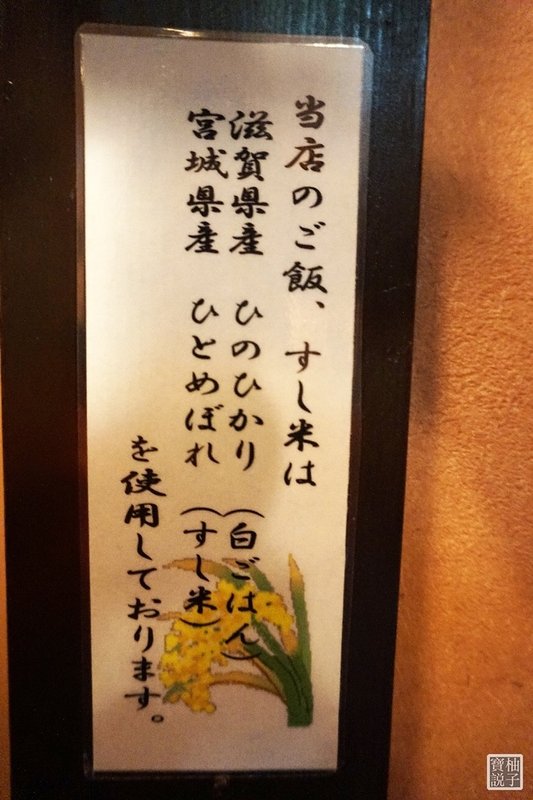 当店のご飯、すし米は
滋賀県産 ひのひかり (白ごはん)
宮城県産 ひとめぼれ (すし米)
を使用しております。
柚子
寶説